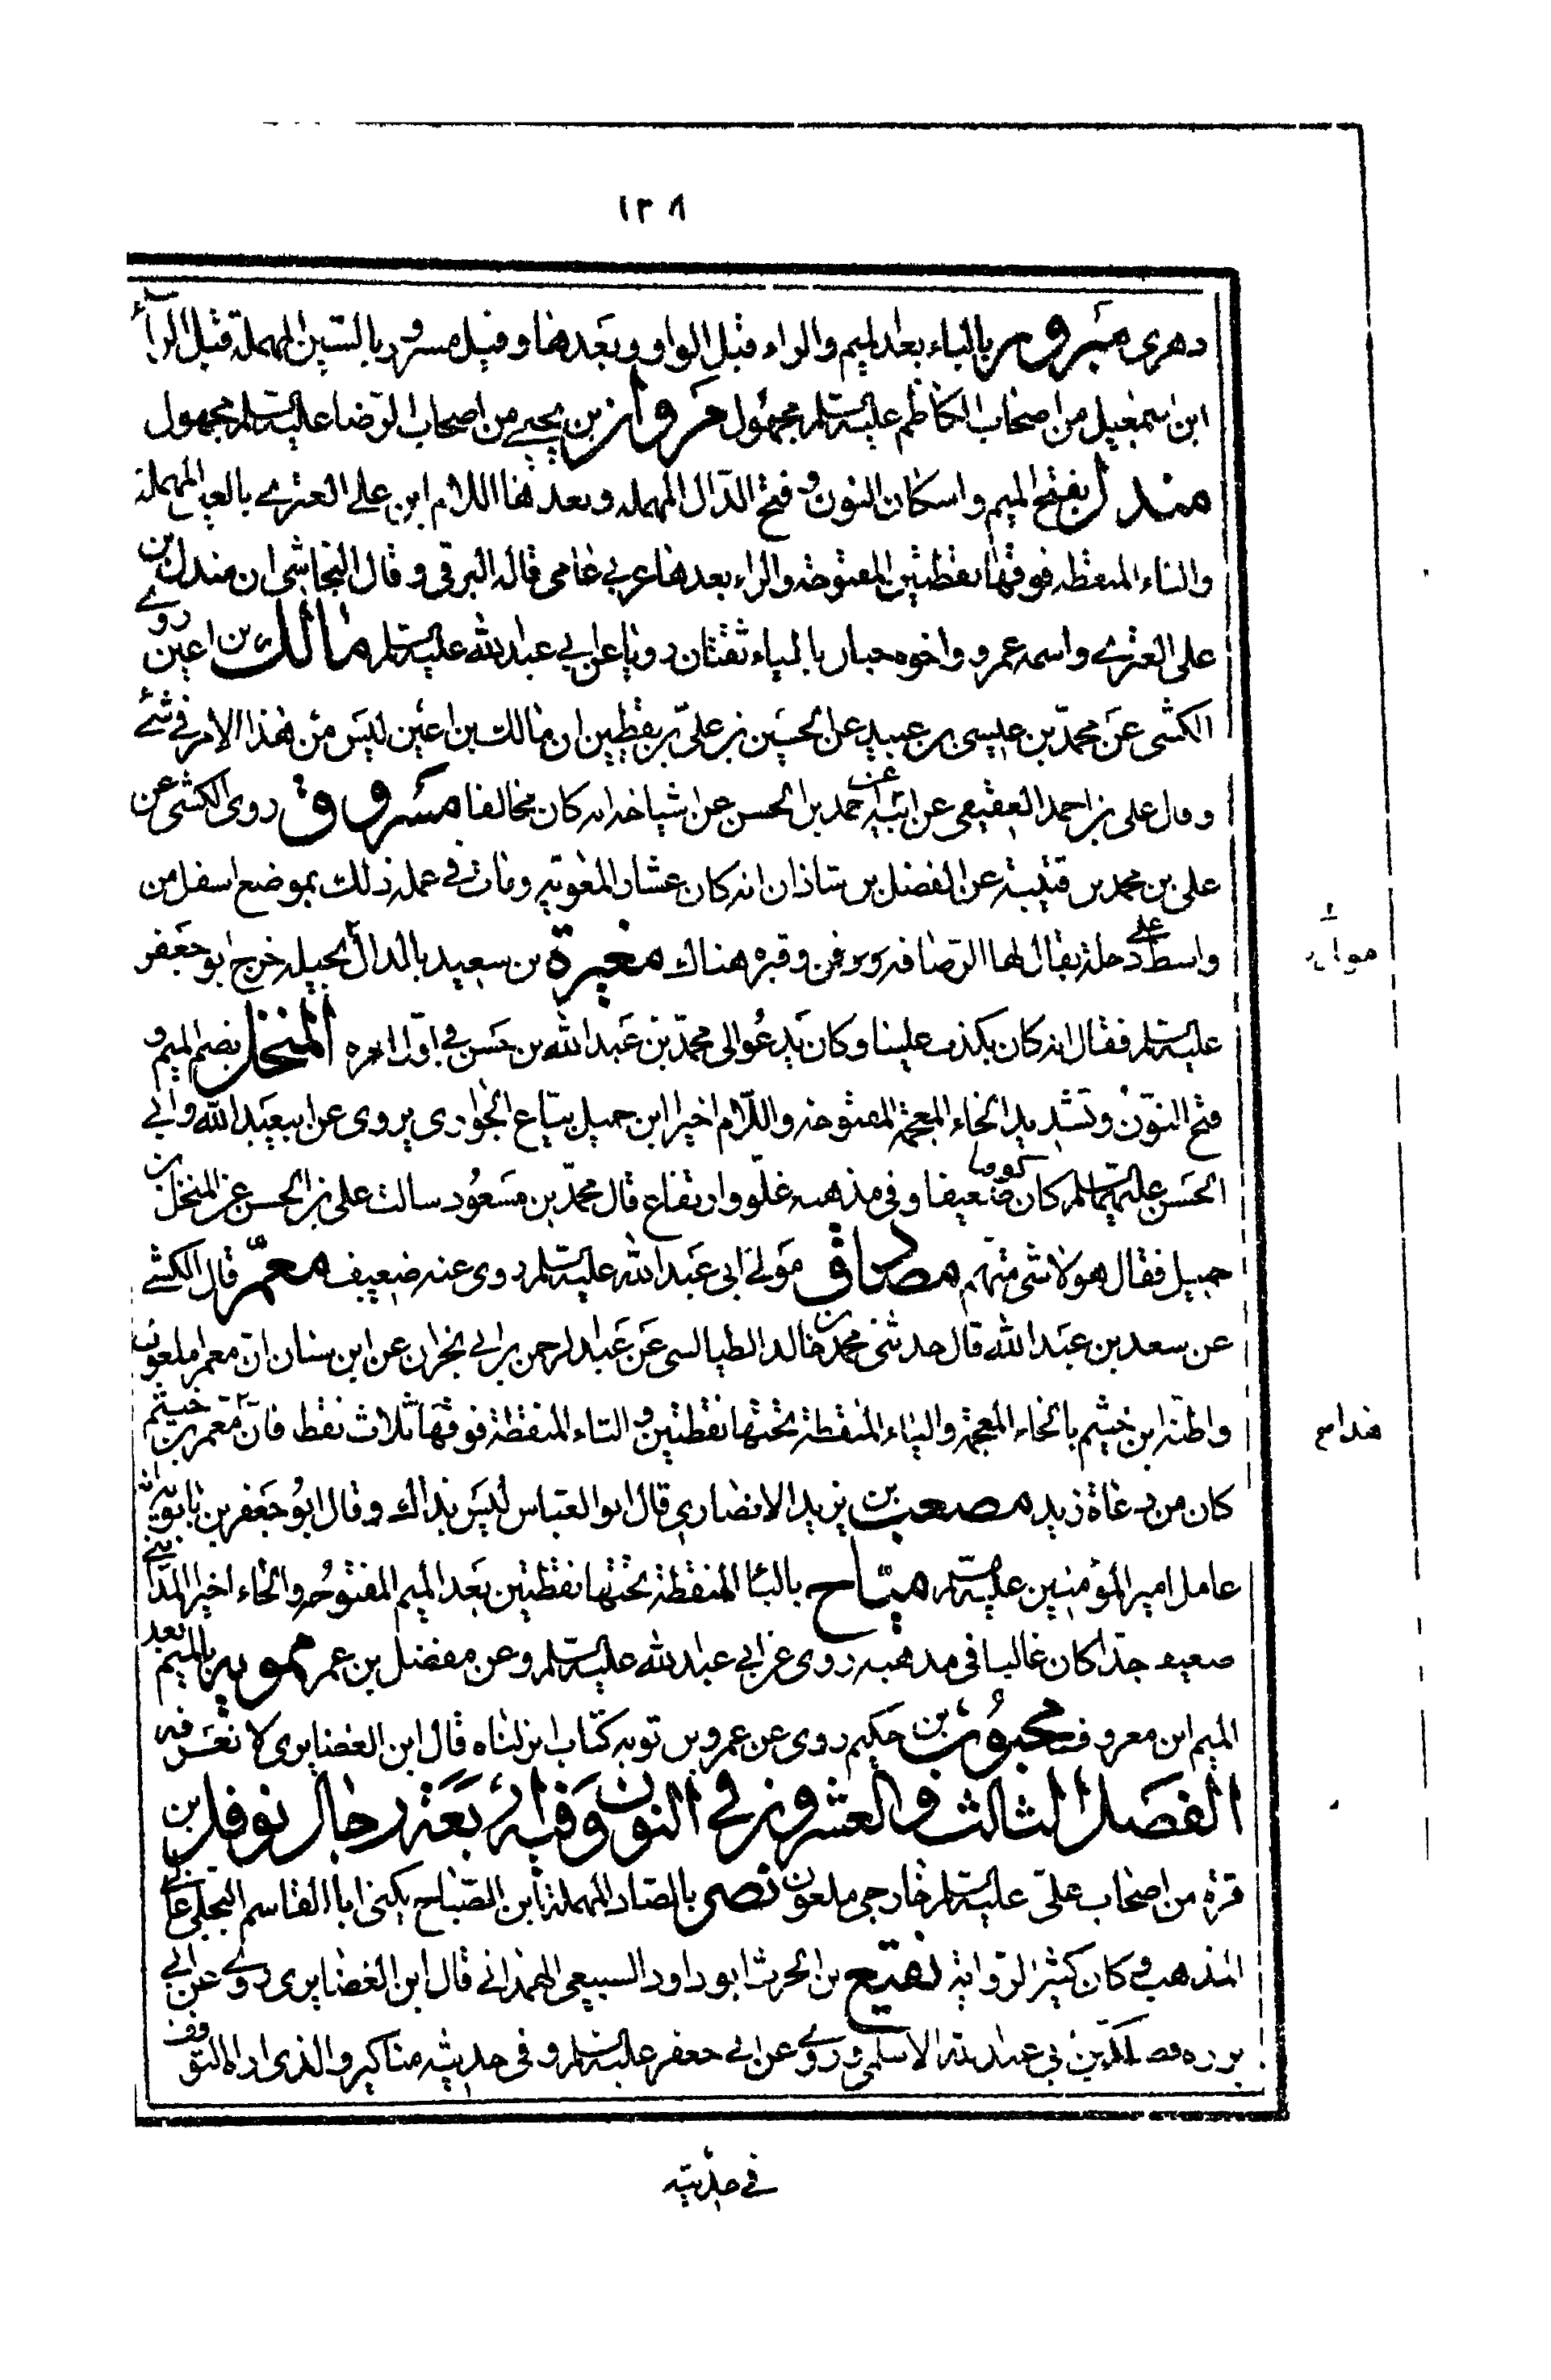 ١٣٨
دهرى مبرور بالباء بعد الميم والراء قبل الواو وبعدها وقيل مسرور بالسين المهملة قبل الراء
ابن اسمعيل من اصحاب الكاظم عليه السلم مجهول مروان بن يحيى من اصحاب الرضا عليه السلم مجهول
مندل بفتح الميم واسكان النون وفتح الدال المهملة وبعدها اللام ابن على العترى بالعين المهملة
والتاء المنقطه فوقها نقطتين المفتوحة والراء بعدها عربى عامى قاله البرقى وقال النجاشى ان مندل بن
على العترى واسمه عمرو واخوه حبان بالياء ثقتان رويا عن ابى عبد الله عليه السلم مالك بن اعين روى
الكشى عن محمد بن عيسى بن عبيد عن الحسين بن على بن يقطين ان مالك بن اعين ليس من هذا الامر فى شئ
وقال على بن احمد العقيقى عن ابيه عن احمد بن الحسن عن اشياخه انه كان مخالفا مسروق روى الكشى عن
على بن محمد بن قتيبة عن الفضل بن شاذان انه كان عشار المعوية ومات فى عمله ذلك بموضع اسفل من
واسط على دجلة يقال لها الرصافة وقبره هناك مغيرة بن سعيد بالدال بجيلة خرج ابو جعفر
عليه السلم فقال انه كان يكذب علينا وكان يدعو الى محمد بن عبد الله بن حسن فى اول امره المنخل بضم الميم و
فتح النون وتشديد الخاء المعجمة المفتوحة واللام اخيرا ابن جميل بياع الجوارى يروى عن ابى عبد الله وابى
الحسن عليهما السلم كان كوفيا ضعيفا وفى مذهبه غلو وارتفاع قال محمد بن مسعود سالت على بن الحسن عن المنخل بن
جميل فقال هو لا شى متهم مصادف مولى ابى عبد الله عليه السلم روى عنه ضعيف معمر قال الكشى
عن سعد بن عبد الله قال حدثنى محمد بن خالد الطيالسى عن عبد الرحمن بن ابى نجران عن ابن سنان ان معمرا ملعون
واظنه ابن خيثم بالخاء المعجمة والياء المنقطة تحتها نقطتين والثاء المنقطة فوقها ثلاث نقط فان معمر بن خيثم
كان من دعاة زيد مصعب بن يزيد الانصارى قال ابو العباس ليس بذاك وقال ابو جعفر بن بابويه انه
عامل امير المؤمنين عليه السلم مياح بالياء المنقطة تحتها نقطتين بعد الميم المفتوحه والحاء اخيرا المداينى
ضعيف جدا كان غاليا فى مذهبه روى عن ابى عبد الله عليه السلم وعن مفضل بن عمر مموية بالميم بعد
الميم ابن معروف محبوب بن حكيم روى عن عمرو بن توبه كتاب انزلناه قال ابن الغضايرى لا نعرفه
الفصل الثالث والعشرون فى النون وفيه اربعة رجال نوفل بن
قرة من اصحاب على عليه السلم خارجى ملعون نصر بالصاد المهملة ابن الصباح يكنى ابا القاسم البلخى غالى
المذهب وكان كثير الرواية نفيع بن الحرث ابو داود السبيعى الهمدانى قال ابن الغضايرى روى عن ابى
برزه الاسلمى وروى عن ابى جعفر عليه السلم وفى حديثه مناكير والذى اراه التوقف
فى حديثه